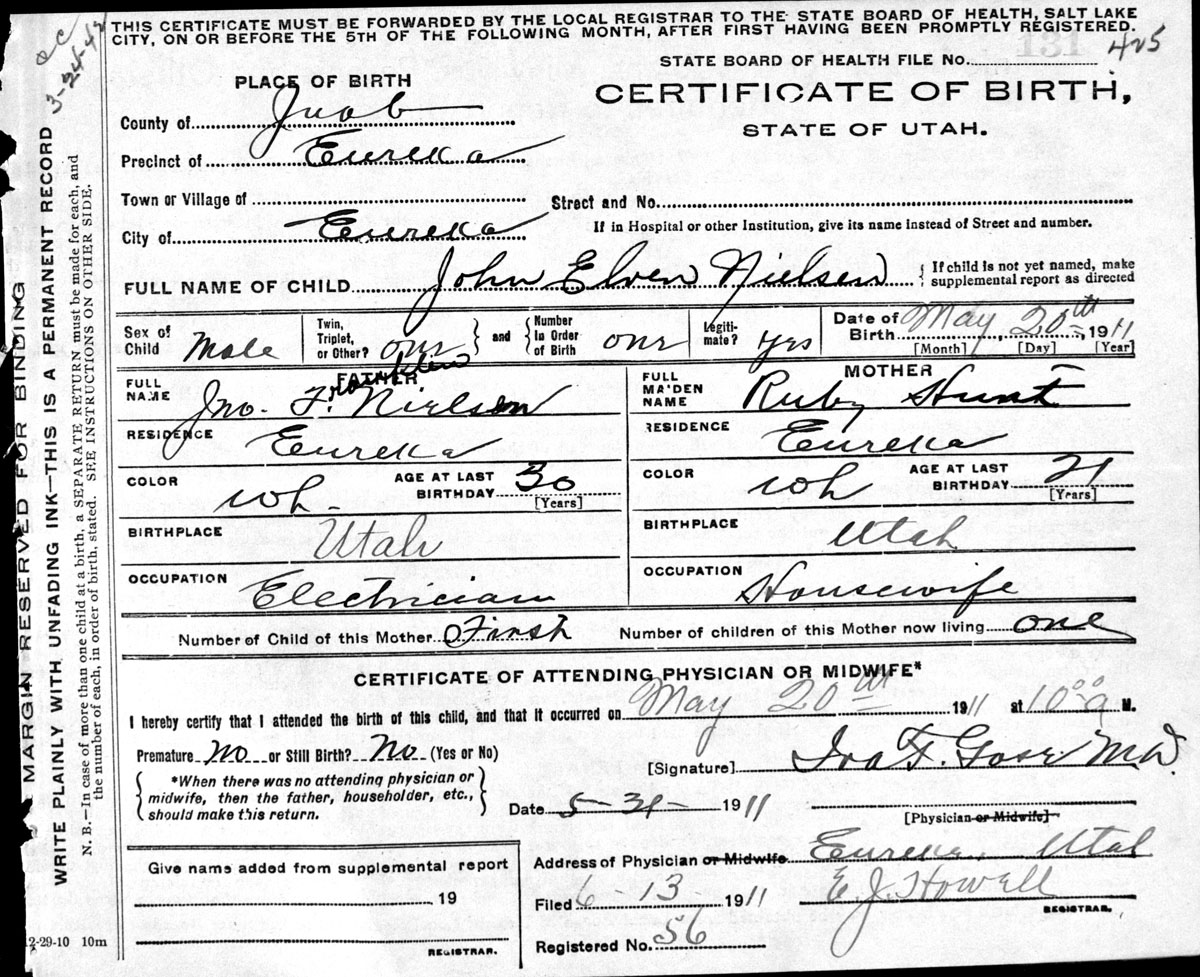 THIS CERTIFICATE MUST BE FORWARDED BY THE LOCAL REGISTRAR TO THE STATE BOARD OF HEALTH, SALT LAKE
CITY, ON OR BEFORE THE 5TH OF THE FOLLOWING MONTH, AFTER FIRST HAVING BEEN PROMPTLY REGISTERED.
3-24-42
STATE BOARD OF HEALTH FILE No. 425
CERTIFICATE OF BIRTH,
STATE OF UTAH.
PLACE OF BIRTH
County of Juab
Precinct of Eureka
Town or Village of
Street and No.
City of Eureka
If in Hospital or other Institution, give its name instead of Street and number.
FULL NAME OF CHILD John Elven Nielsen { If child is not yet named, make supplemental report as directed
Sex of Child Male
Twin, Triplet, or Other? one } and { Number In Order of Birth one
Legiti-mate? yes
Date of Birth May 20th 1911
[Month] [Day] [Year]
FATHER
FULL NAME Jno. F. Nielsen
Franklin
RESIDENCE Eureka
COLOR wh. AGE AT LAST BIRTHDAY 30 [Years]
BIRTHPLACE Utah
OCCUPATION Electrician
MOTHER
FULL MAIDEN NAME Ruby Hunt
RESIDENCE Eureka
COLOR wh AGE AT LAST BIRTHDAY 21 [Years]
BIRTHPLACE Utah
OCCUPATION Housewife
Number of Child of this Mother First Number of children of this Mother now living one
CERTIFICATE OF ATTENDING PHYSICIAN OR MIDWIFE*
I hereby certify that I attended the birth of this child, and that it occurred on May 20th 1911 at 10 00 a M.
Premature No or Still Birth? No (Yes or No)
{ *When there was no attending physician or
midwife, then the father, householder, etc.,
should make this return. }
[Signature] Ira F. M.D.
Date 5-31- 1911
[Physician or Midwife]
Address of Physician or Midwife Eureka, Utah
Filed 6-13 1911 E. J. Howell
REGISTRAR.
Registered No. 56
Give name added from supplemental report
19
REGISTRAR.
12-29-10 10m
MARGIN RESERVED FOR BINDING
WRITE PLAINLY WITH UNFADING INK—THIS IS A PERMANENT RECORD
N. B.—In case of more than one child at a birth, a SEPARATE RETURN must be made for each, and
the number of each, in order of birth, stated. SEE INSTRUCTIONS ON OTHER SIDE.